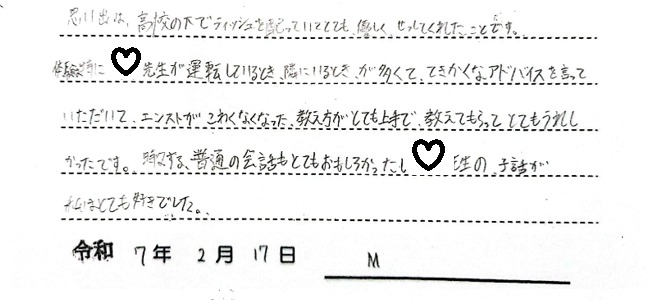 思い出は、高校の下でティッシュを配っていてとても優しくせってくれたことです。
体験時に 先生が運転しているとき、隣にいるとき、が多くて、てきかくなアドバイスを言って
いただいて、エンストがこわくなくなった、教え方がとても上手で、教えてもらってとてもうれし
かったです。 時々する、普通の会話もとてもおもしろかったし 先生の 話が
私はとても好きでした。
令和 7年 2月 17日 M